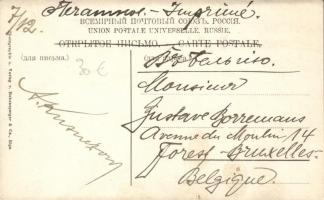 Печатное - Imprimé.
7/12.
ВСЕМІРНЫЙ ПОЧТОВЫЙ СОЮЗЪ. РОССІЯ.
UNION POSTALE UNIVERSELLE. RUSSIE.
ОТКРЫТОЕ ПИСЬМО. — CARTE POSTALE.
(для письма.)
30 €
Бельгию.
Monsieur
Gustave Borremans
Avenue du Moulin 14
Forest-Bruxelles.
Belgique.